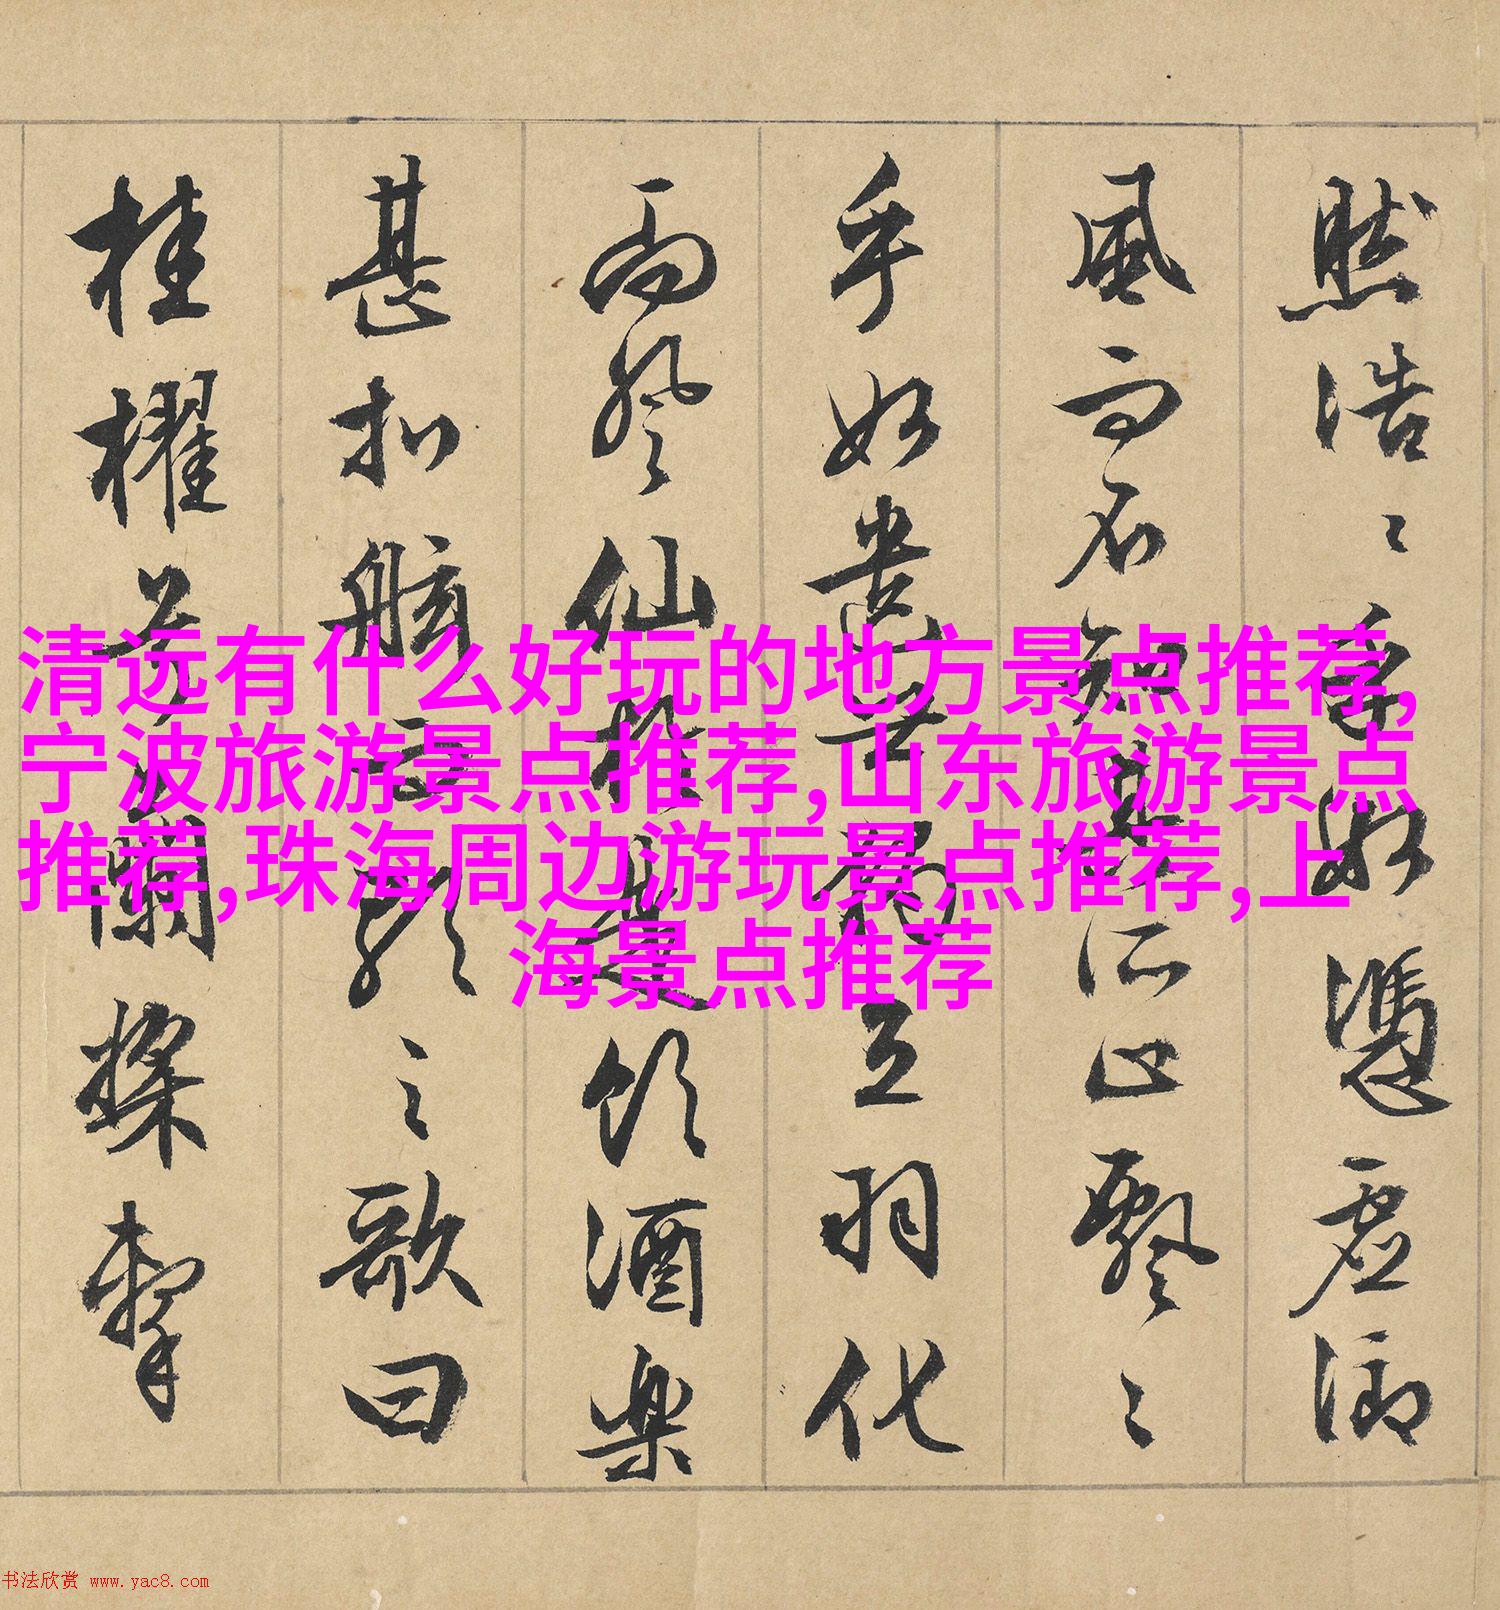 然浩〻乎如憑虛御
風而不知其所止飄〻
乎如遺世獨立羽化
而登仙於是飲酒樂
甚扣舷而歌之歌曰
桂櫂兮蘭槳擊
清远有什么好玩的地方景点推荐,
宁波旅游景点推荐,山东旅游景点
推荐,珠海周边游玩景点推荐,上
海景点推荐
书法欣赏 www.yac8.com